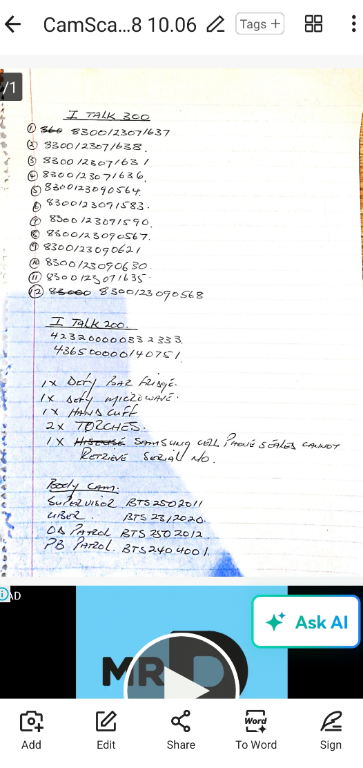 CamSca...8 10.06
Tags +
/1
I TALK 300
① 860 8300123071637
② 8300123071638.
③ 8300123071631
④ 8300123071636
⑤ 8300123090564
⑥ 8300123091583.
⑦ 8300123071590
⑧ 8300123090567.
⑨ 8300123090621
⑩ 8300123090630
⑪ 8300123071635
⑫ 83000 8300123090568
I TALK 200.
42320000832333
43650000140751
1x Defy BAR Fridge.
1x Defy MICROWAVE.
1x HAND CUFF
2x TORCHES.
1x SAMSUNG CELL PHONE SEALED CANNOT
RETRIEVE SERIAL NO.
Body CAM.
SUPERVISOR BTS2502011
BTS 2312020.
OB PATROL BTS2502012
PB PATROL. BTS2404001.
AD
Ask AI
MR D
Word
Add
Edit
Share
To Word
Sign